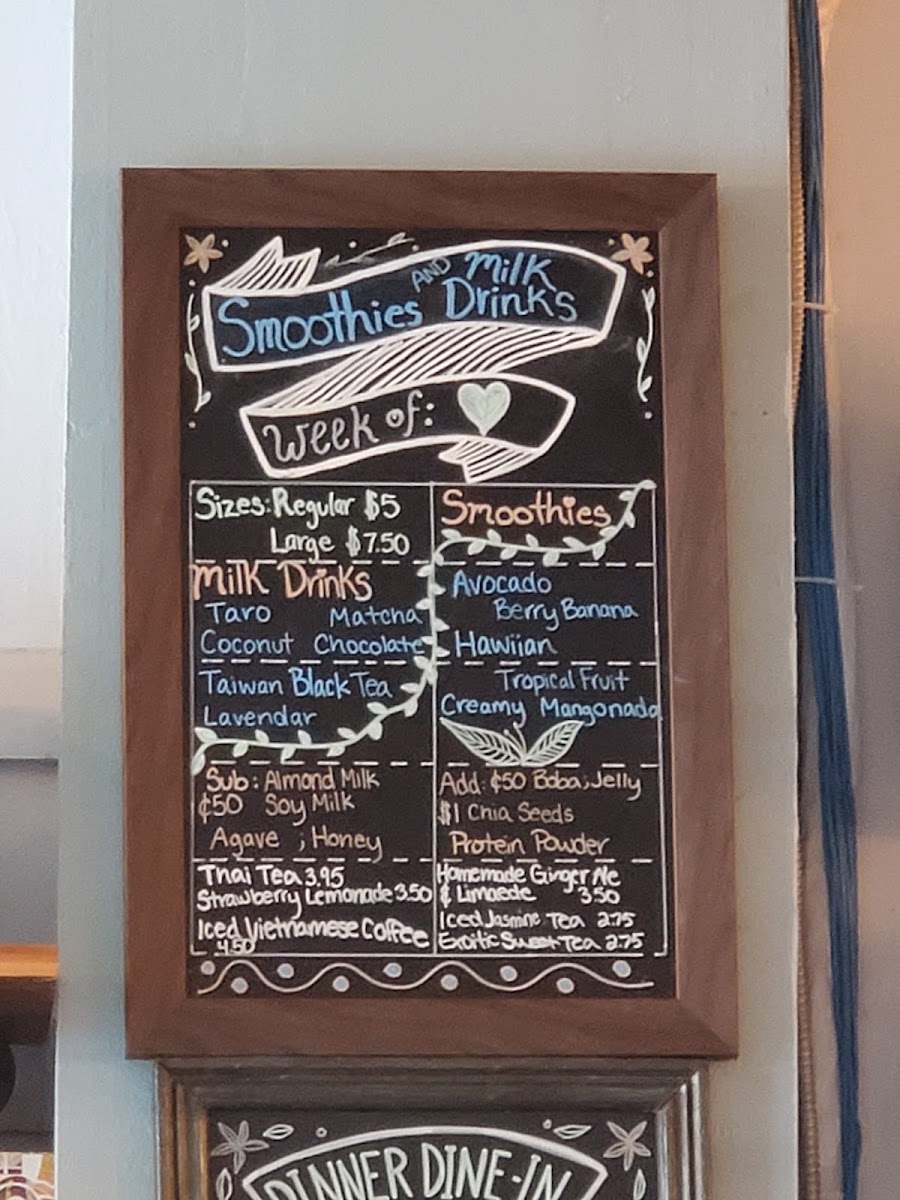 Smoothies AND Milk Drinks
Week of:
Sizes: Regular $5
Large $7.50
Milk Drinks
Taro Matcha
Coconut Chocolate
Taiwan Black Tea
Lavendar
Sub: Almond Milk
¢50 Soy Milk
Agave ; Honey
Thai Tea 3.95
Strawberry Lemonade 3.50
Iced Vietnamese Coffee
4.50
Smoothies
Avocado
Berry Banana
Hawiian
Tropical Fruit
Creamy Mangonada
Add: ¢50 Boba; Jelly
$1 Chia Seeds
Protein Powder
Homemade Ginger Ale
& Limaede 3.50
Iced Jasmine Tea 2.75
Exoitic Sweet Tea 2.75
DINNER DINE-IN